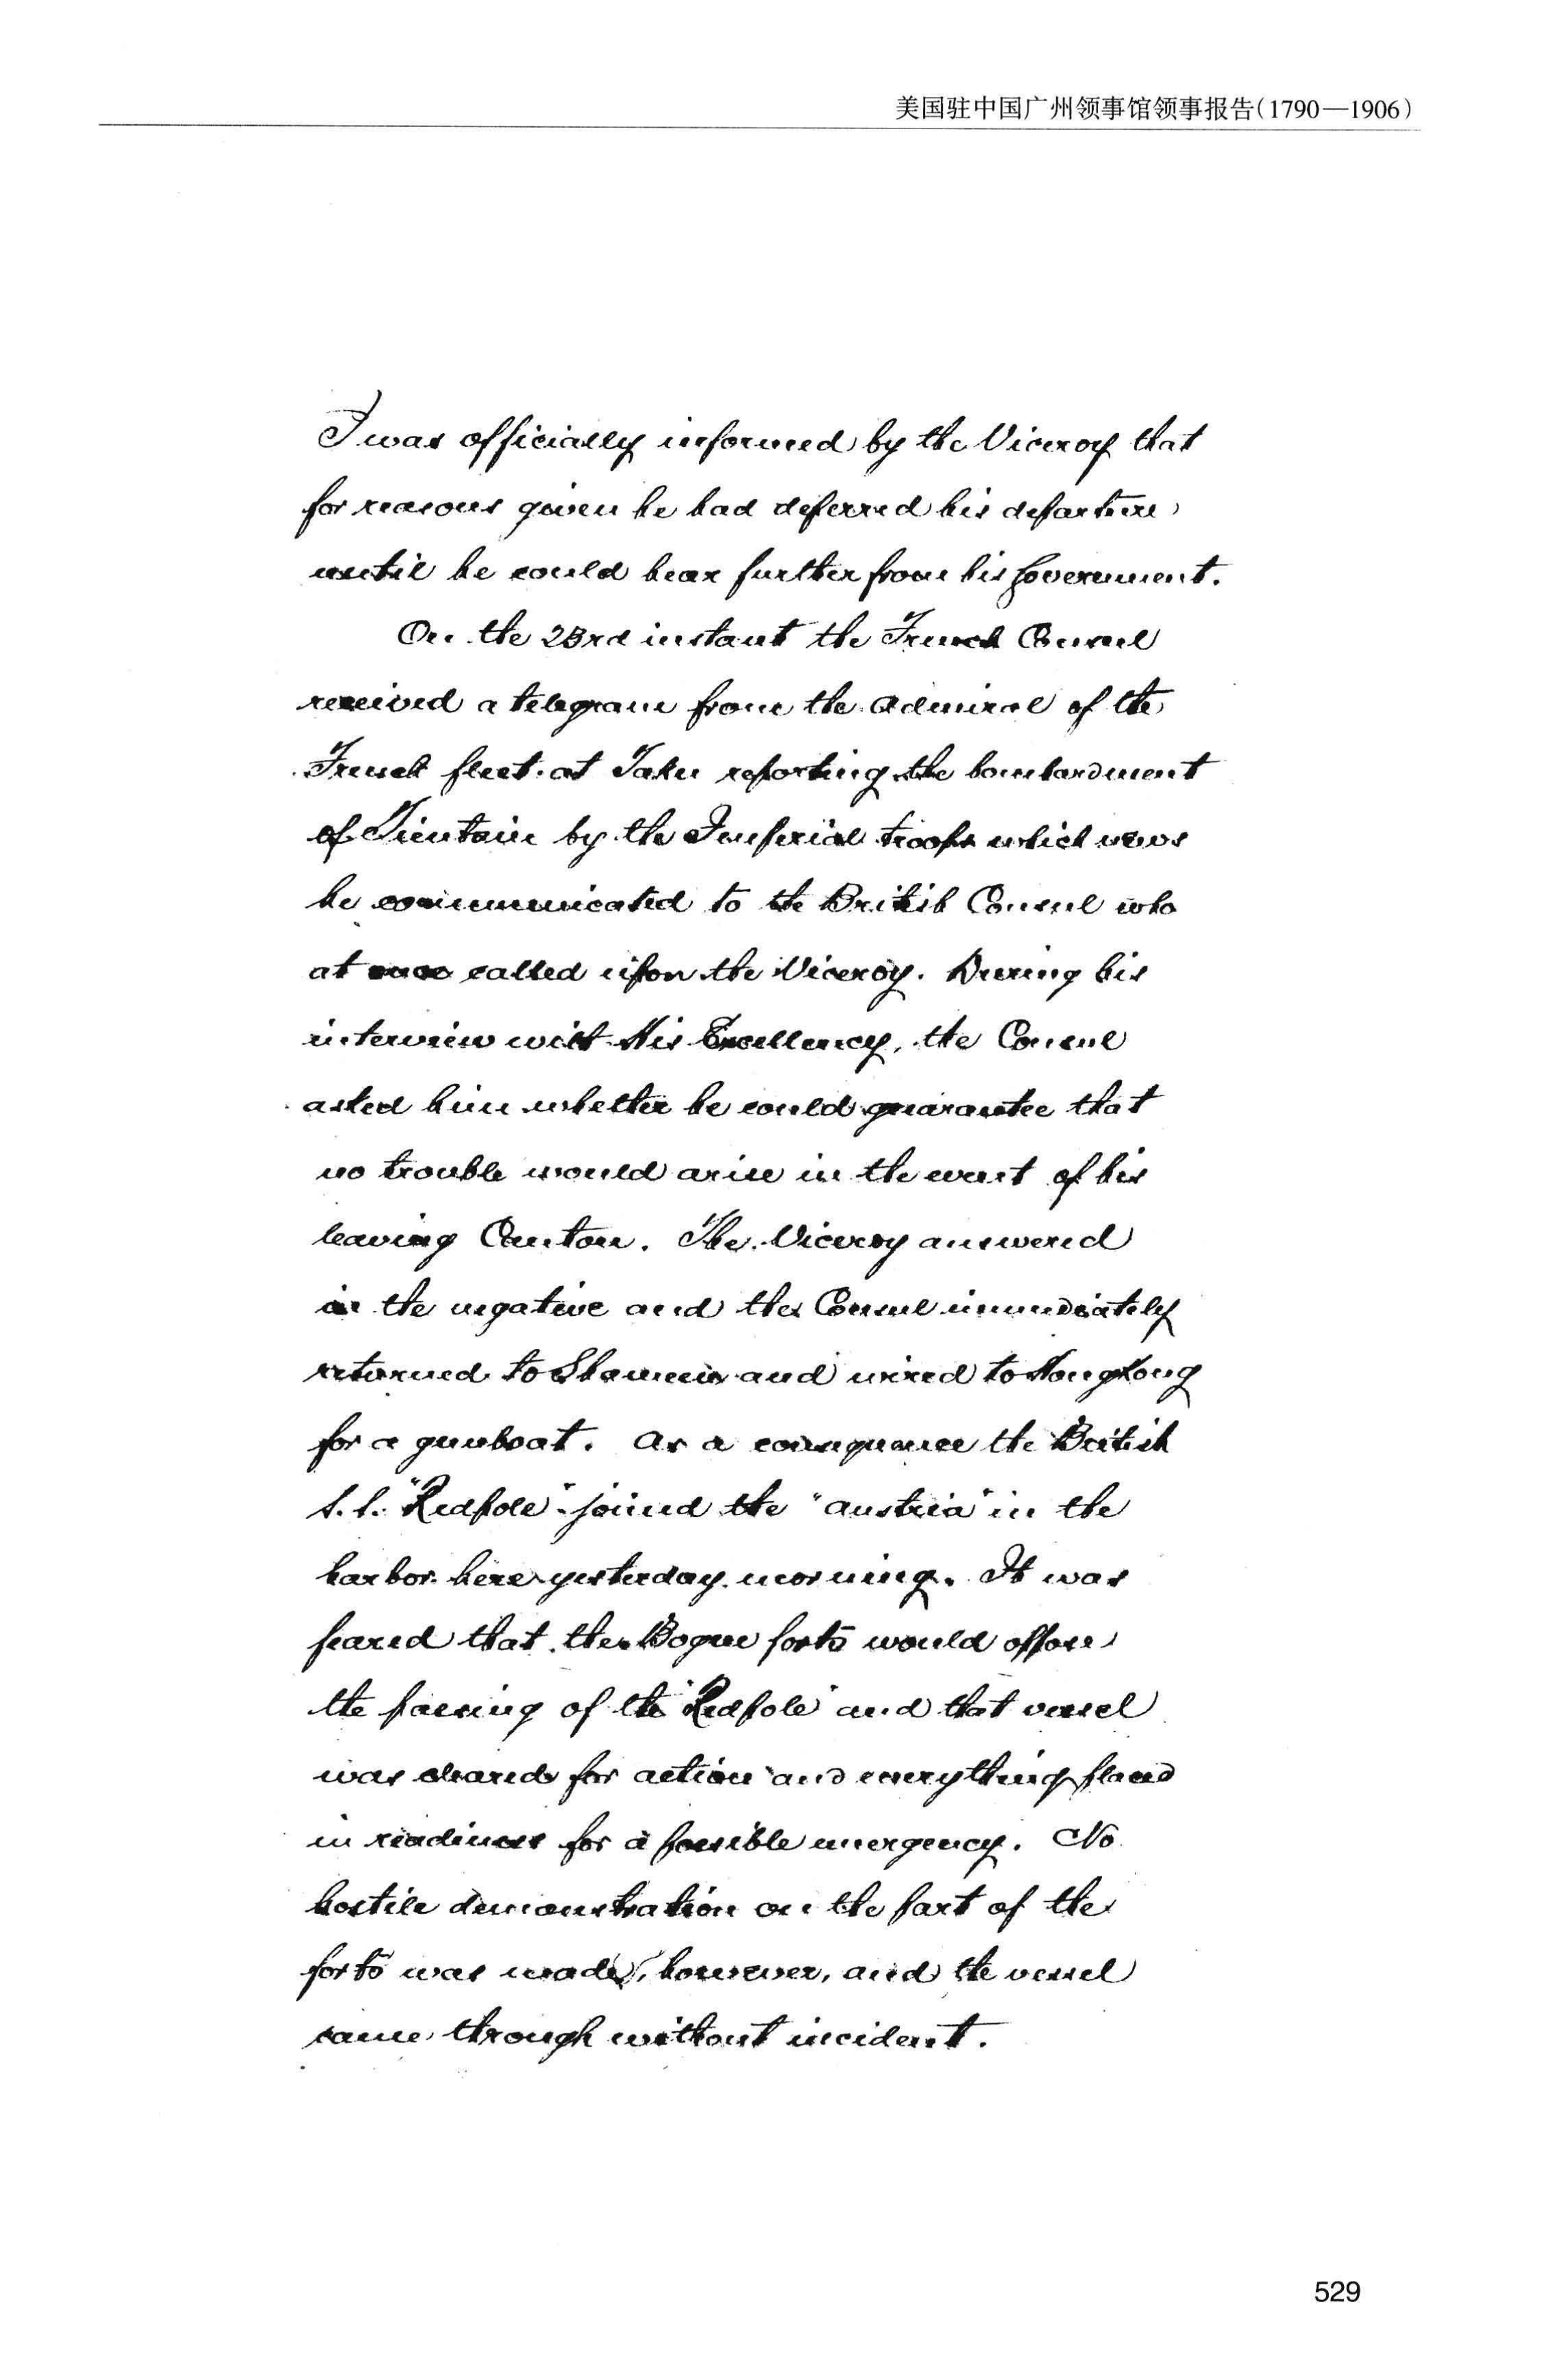 美国驻中国广州领事馆领事报告(1790—1906)
I was officially informed by the Viceroy that
for reasons given he had deferred his departure
until he could hear further from his Government.
On the 23rd instant the French Consul
received a telegram from the Admiral of the
French fleet at Taku reporting the bombardment
of Tientsin by the Imperial troops which news
he communicated to the British Consul who
at once called upon the Viceroy. During his
interview with His Excellency, the Consul
asked him whether he could guarantee that
no trouble would arise in the event of his
leaving Canton. The Viceroy answered
in the negative and the Consul immediately
returned to Shameen and wired to Hongkong
for a gunboat. As a consequence the British
S.S. "Redpole" joined the "Austria" in the
harbor here yesterday morning. It was
feared that the Bogue forts would oppose
the passing of the "Redpole" and that vessel
was cleared for action and everything placed
in readiness for a possible emergency. No
hostile demonstration on the part of the
forts was made, however, and the vessel
came through without incident.
529